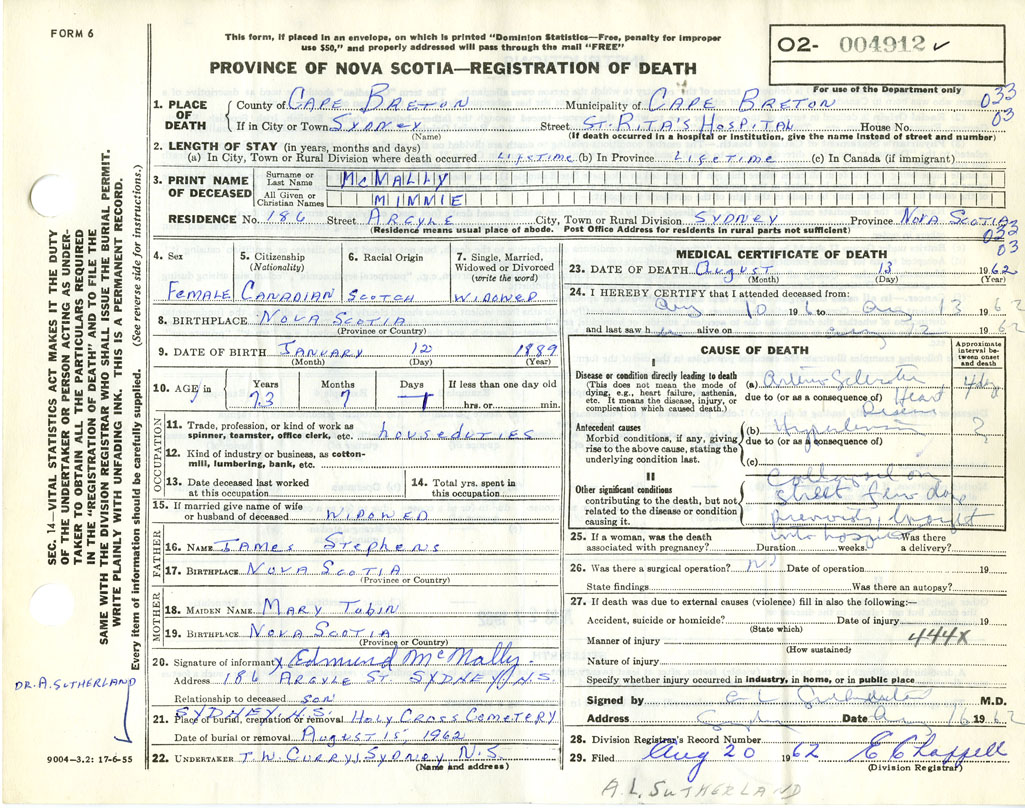 FORM 6
This form, if placed in an envelope, on which is printed "Dominion Statistics—Free, penalty for improper
use $50," and properly addressed will pass through the mail "FREE"
PROVINCE OF NOVA SCOTIA—REGISTRATION OF DEATH
O2- 004912 ✓
For use of the Department only
033
03
1. PLACE OF DEATH
County of CAPE BRETON Municipality of CAPE BRETON
If in City or Town SYDNEY Street ST. RITA'S HOSPITAL House No.
(Name) (If death occurred in a hospital or institution, give the name instead of street and number)
2. LENGTH OF STAY (in years, months and days)
(a) In City, Town or Rural Division where death occurred LIFETIME (b) In Province LIFETIME (c) In Canada (if immigrant)
3. PRINT NAME OF DECEASED
Surname or Last Name McMALLY
All Given or Christian Names MINNIE
RESIDENCE No. 186 Street ARGYLE City, Town or Rural Division SYDNEY Province NOVA SCOTIA
(Residence means usual place of abode. Post Office Address for residents in rural parts not sufficient)
033
03
4. Sex
FEMALE
5. Citizenship
(Nationality)
CANADIAN
6. Racial Origin
SCOTCH
7. Single, Married,
Widowed or Divorced
(write the word)
WIDOWED
8. BIRTHPLACE NOVA SCOTIA
(Province or Country)
9. DATE OF BIRTH JANUARY 12 1889
(Month) (Day) (Year)
10. AGE in
Years Months Days If less than one day old
73 7 1 hrs. or min.
OCCUPATION
11. Trade, profession, or kind of work as
spinner, teamster, office clerk, etc. HOUSEDUTIES
12. Kind of industry or business, as cotton-
mill, lumbering, bank, etc.
13. Date deceased last worked
at this occupation
14. Total yrs. spent in
this occupation
15. If married give name of wife
or husband of deceased WIDOWED
FATHER
16. NAME JAMES STEPHENS
17. BIRTHPLACE NOVA SCOTIA
(Province or Country)
MOTHER
18. MAIDEN NAME MARY TOBIN
19. BIRTHPLACE NOVA SCOTIA
(Province or Country)
20. Signature of informant X Edmund McMally
Address 186 ARGYLE ST. SYDNEY, N.S.
Relationship to deceased SON
SYDNEY, N.S.
21. Place of burial, cremation or removal HOLY CROSS CEMETERY
Date of burial or removal AUGUST 15 1962
22. UNDERTAKER T.W. CURRY, SYDNEY N.S
(Name and address)
MEDICAL CERTIFICATE OF DEATH
23. DATE OF DEATH AUGUST 13 1962
(Month) (Day) (Year)
24. I HEREBY CERTIFY that I attended deceased from:
Aug 10 196 to Aug 13 1962
and last saw h alive on Aug 12 1962
CAUSE OF DEATH
Approximate interval between onset and death
I
Disease or condition directly leading to death
(This does not mean the mode of
dying, e.g., heart failure, asthenia,
etc. It means the disease, injury, or
complication which caused death.)
(a) Arterio Sclerotic 4 days
due to (or as a consequence of) Heart
Disease
Antecedent causes
Morbid conditions, if any, giving
rise to the above cause, stating the
underlying condition last.
(b) Hypertension ?
due to (or as a consequence of)
(c)
II
Other significant conditions
contributing to the death, but not
related to the disease or condition
causing it.
Collapsed on
street few days
previously, brought
into hospital
25. If a woman, was the death
associated with pregnancy? Duration weeks. Was there
a delivery?
26. Was there a surgical operation? No Date of operation 19
State findings Was there an autopsy?
27. If death was due to external causes (violence) fill in also the following:—
Accident, suicide or homicide? Date of injury 19
(State which)
Manner of injury 444X
(How sustained)
Nature of injury
Specify whether injury occurred in industry, in home, or in public place
Signed by A L Sutherland M.D.
Address Sydney Date Aug 16 1962
28. Division Registrar's Record Number
29. Filed Aug 20 1962 E Chappell
(Division Registrar)
A.L. SUTHERLAND
SEC. 14—VITAL STATISTICS ACT MAKES IT THE DUTY
OF THE UNDERTAKER OR PERSON ACTING AS UNDER-
TAKER TO OBTAIN ALL THE PARTICULARS REQUIRED
IN THE "REGISTRATION OF DEATH" AND TO FILE THE
SAME WITH THE DIVISION REGISTRAR WHO SHALL ISSUE THE BURIAL PERMIT.
WRITE PLAINLY WITH UNFADING INK. THIS IS A PERMANENT RECORD.
Every item of information should be carefully supplied. (See reverse side for instructions.)
DR. A. SUTHERLAND
9004—3.2: 17-6-55